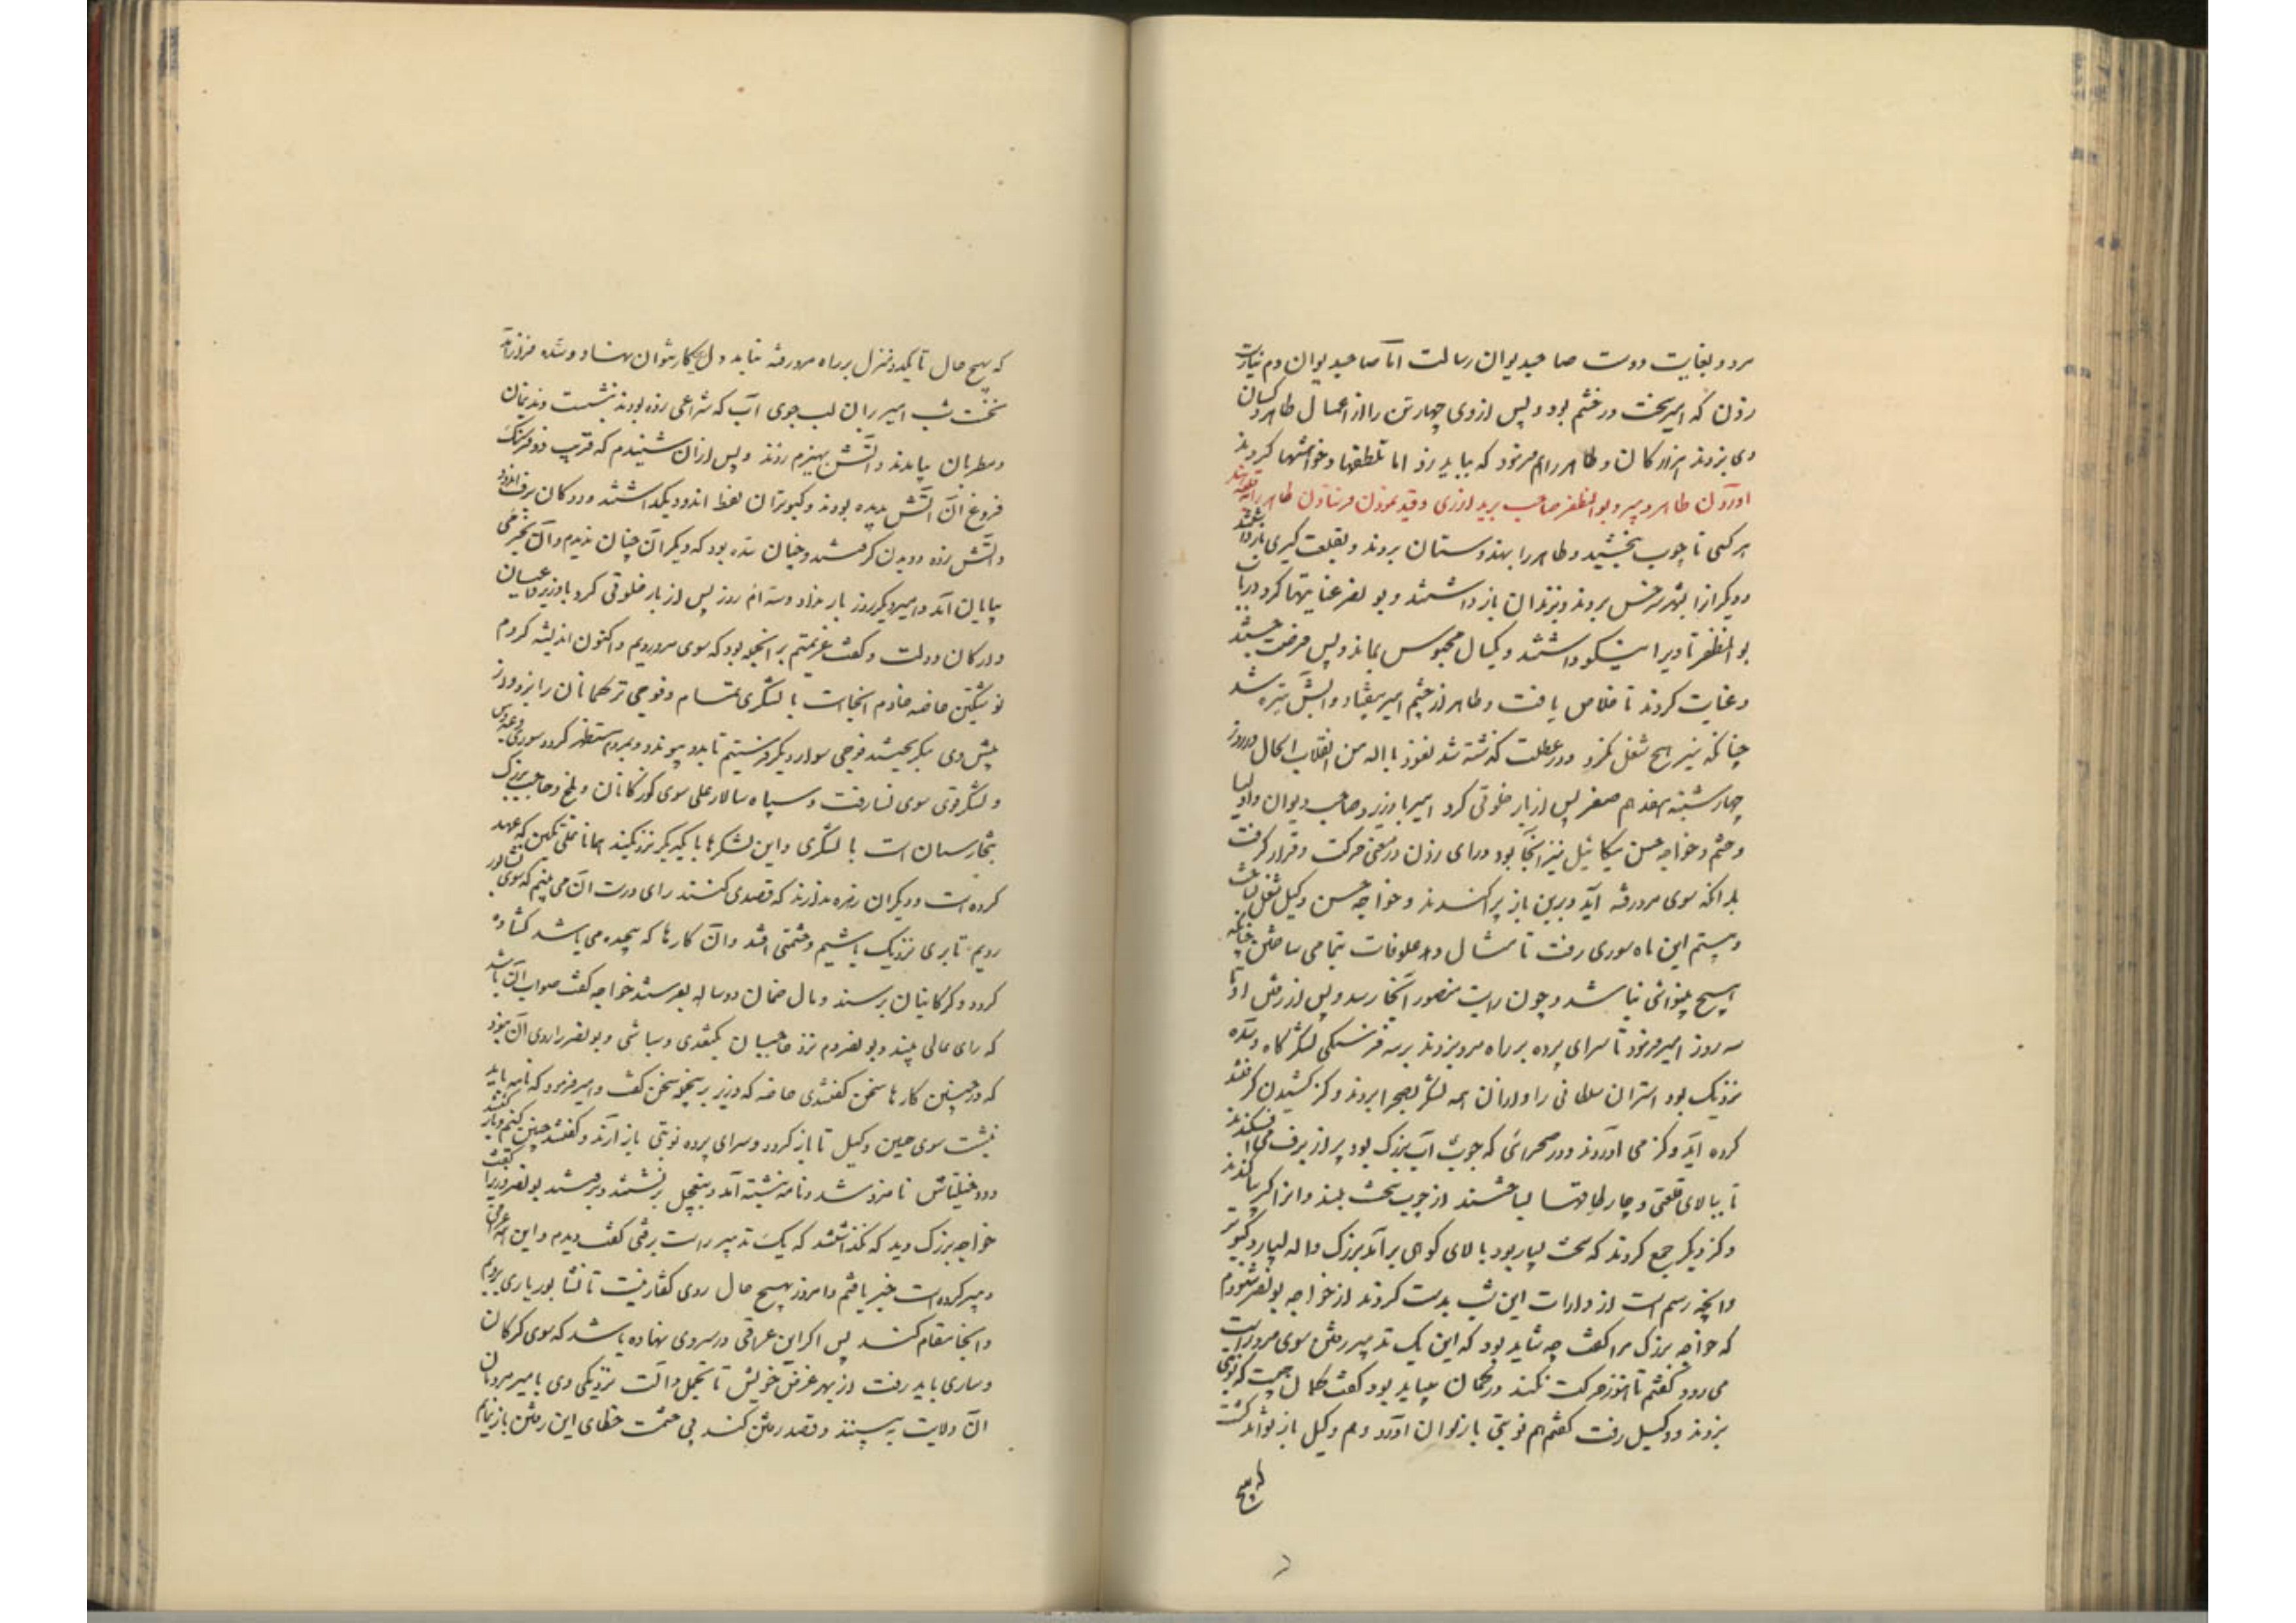 مرد و بغایت دوست صاحبدیوان رسالت اما صاحبدیوان دم نیارست
زدن که امیر سخت در خشم بود و پس از وی چهار تن را از اعیال طاهر و کسان
وی بزدند هزارکان و طاهر را هم فرمود که بباید زد اما تلطفها و خواهشها کردند
اوردن طاهر و پسر و بوالمظفر صاحب برید از ری و قید نمودن فرستادن طاهر را به قلعه
هر کسی تا چوب بخشید و طاهر را بهندوستان بردند و بقلعت کیری بازداشتند
و دیگر را بشهر سرخس بردند و بزندان بازداشتند و بو نصر عنایتها کرد در باب
بو المظفر تا ویرا نیکو داشتند و یکسال محبوس بماند و پس فرصت جستند
و عنایت کردند تا خلاص یافت و طاهر از چشم امیر بیفتاد و آبش تیره شد
چنانکه نیز هیچ شغل نکرد و در عطلت گذشته شد نعوذ بالله من انقلاب الحال و روز
چهارشنبه هفدهم صفر پس از بار خلوتی کرد امیر با وزیر و صاحب دیوان و اولیا
و حشم و خواجه حسن میکائیل نیز آنجا بود و رای زدن در معنی حرکت و قرار گرفت
بدانکه سوی مرو رفته آید و برین باز پراکندند و خواجه حسن وکیل شغل
و بیستم این ماه سوری رفت تا مثال دهد علوفات بتمامی ساختن چنانکه
هیچ بینوائی نباشد و چون رایت منصور آنجا رسد و پس از رفتن او تا
سه روز امیر فرمود تا سرای پرده بر راه مرو بزدند بر سه فرسنگی لشکرگاه و سده
نزدیک بود اشتران سلطانی را و از آن همه لشکر بصحرا بردند و گز کشیدن گرفتند
کرده آید و گز می آوردند و در صحرائی که جوی آب بزرگ بود پر از برف می افکندند
تا ببالای قلعتی و چار طاقها بساختند از چوب سخت بلند و آنرا بگز بیاکندند
و گز دیگر جمع کردند که سخت بسیار بود ببالای کوهی برآمد بزرگ و اله بسیار و کبوتر
و آنچه رسم است از دارات این شب بدست کردند از خواجه بونصر شنودم
که خواجه بزرگ مرا گفت چه شاید بود که این یک تدبیر رفتن سوی مرو راست
می رود گفتم تا هنوز حرکت نکند در گمان بیباید بود گفت گمان چیست که نوبتی
بزدند و وکیل رفت گفتم هم نوبتی باز توان آورد و هم وکیل باز تواند گشت
که هیچ
که بهیچ حال تا یکدو منزل بر راه مرو رفته نیاید دل بر این کار نتوان نهاد و سده فراز آمد
نخست شب امیر بر ان لب جوی آب که شراعی زده بودند بنشست و ندیمان
و مطربان بیامدند و آتش بهیزم زدند و پس از ان شنیدم که قریب ده فرسنگ
فروغ آن آتش بدیده بودند و کبوتران نفط اندود بگذاشتند و ددگان برف اندود
و آتش زده دویدن گرفتند و چنان سده بود که دیگر آن چنان ندیدم و آن بخرمی
بپایان آمد و امیر دیگر روز بار نداد و سه ام روز پس از بار خلوتی کرد با وزیر و اعیان
و ارکان دولت و گفت عزیمتم بر آنجمله بود که سوی مرو رویم و اکنون اندیشه کردم
نوشتگین خاصه خادم آنجاست با لشکری تمام و فوجی ترکمانان را بزد و از
پیش وی بگریختند فوجی سوار دیگر فرستیم تا بدو پیوندد و بمردم مستظهر گردد سوری و عبدوس
و لشکر قوی سوی نسا رفت و سپاه سالار علی سوی گوزگانان و بلخ و حاجب بزرگ
بتخارستان است با لشکری و این لشکرها با یکدیگر نزدیکند همانا علی تگین که عهد
کرده است و دیگران زهره ندارند که قصدی کنند رای درست آن می بینم که سوی نشابور
رویم تا بری نزدیک باشیم و حشمتی افتد و آن کارها که پیچیده می باشد گشاده
گردد و گرگانیان برسند و مال ضمان دو ساله بفرستند خواجه گفت صواب آن باشد
که رای عالی بیند و بو نصر دم نزد حاجبان بگتغدی و سباشی و بو نصر را روی آن نبود
که در چنین کارها سخن گفتندی خاصه که وزیر بر ینجمله سخن گفت و امیر فرمود که نامه باید
نبشت سوی حسن وکیل تا باز گردد و سرای پرده نوبتی باز آرند و گفتند چنین کنیم و باز گشتند
و دو خیلتاش نامزد شد و نامه نبشته آمد و بتعجیل برنشستند و برفتند بونصر وزیر را گفت
خواجه بزرگ دید که نگذاشتند که یک تدبیر راست برفتی گفت دیدم و این همه عراقی
دبیر کرده است خبر یافتم و امروز بهیچ حال روی گفتار نیست تا نشابور باری برویم
و آنجا مقام کنند پس اگر این عراقی در سر وی نهاده باشد که سوی گرگان
و ساری باید رفت از بهر غرض خویش تا تجمل و آلت نزدیکی وی با امیر مردمان
آن ولایت به بینند و قصد رفتن کند بی حشمت خطای این رفتن باز نمایم